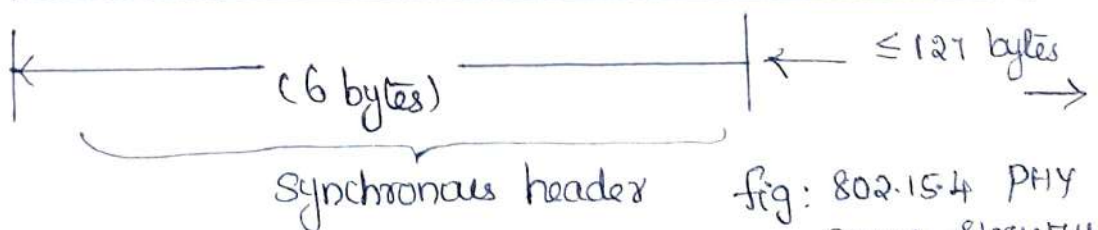 ≤ 127 bytes
(6 bytes)
synchronous header
fig: 802.15.4 PHY